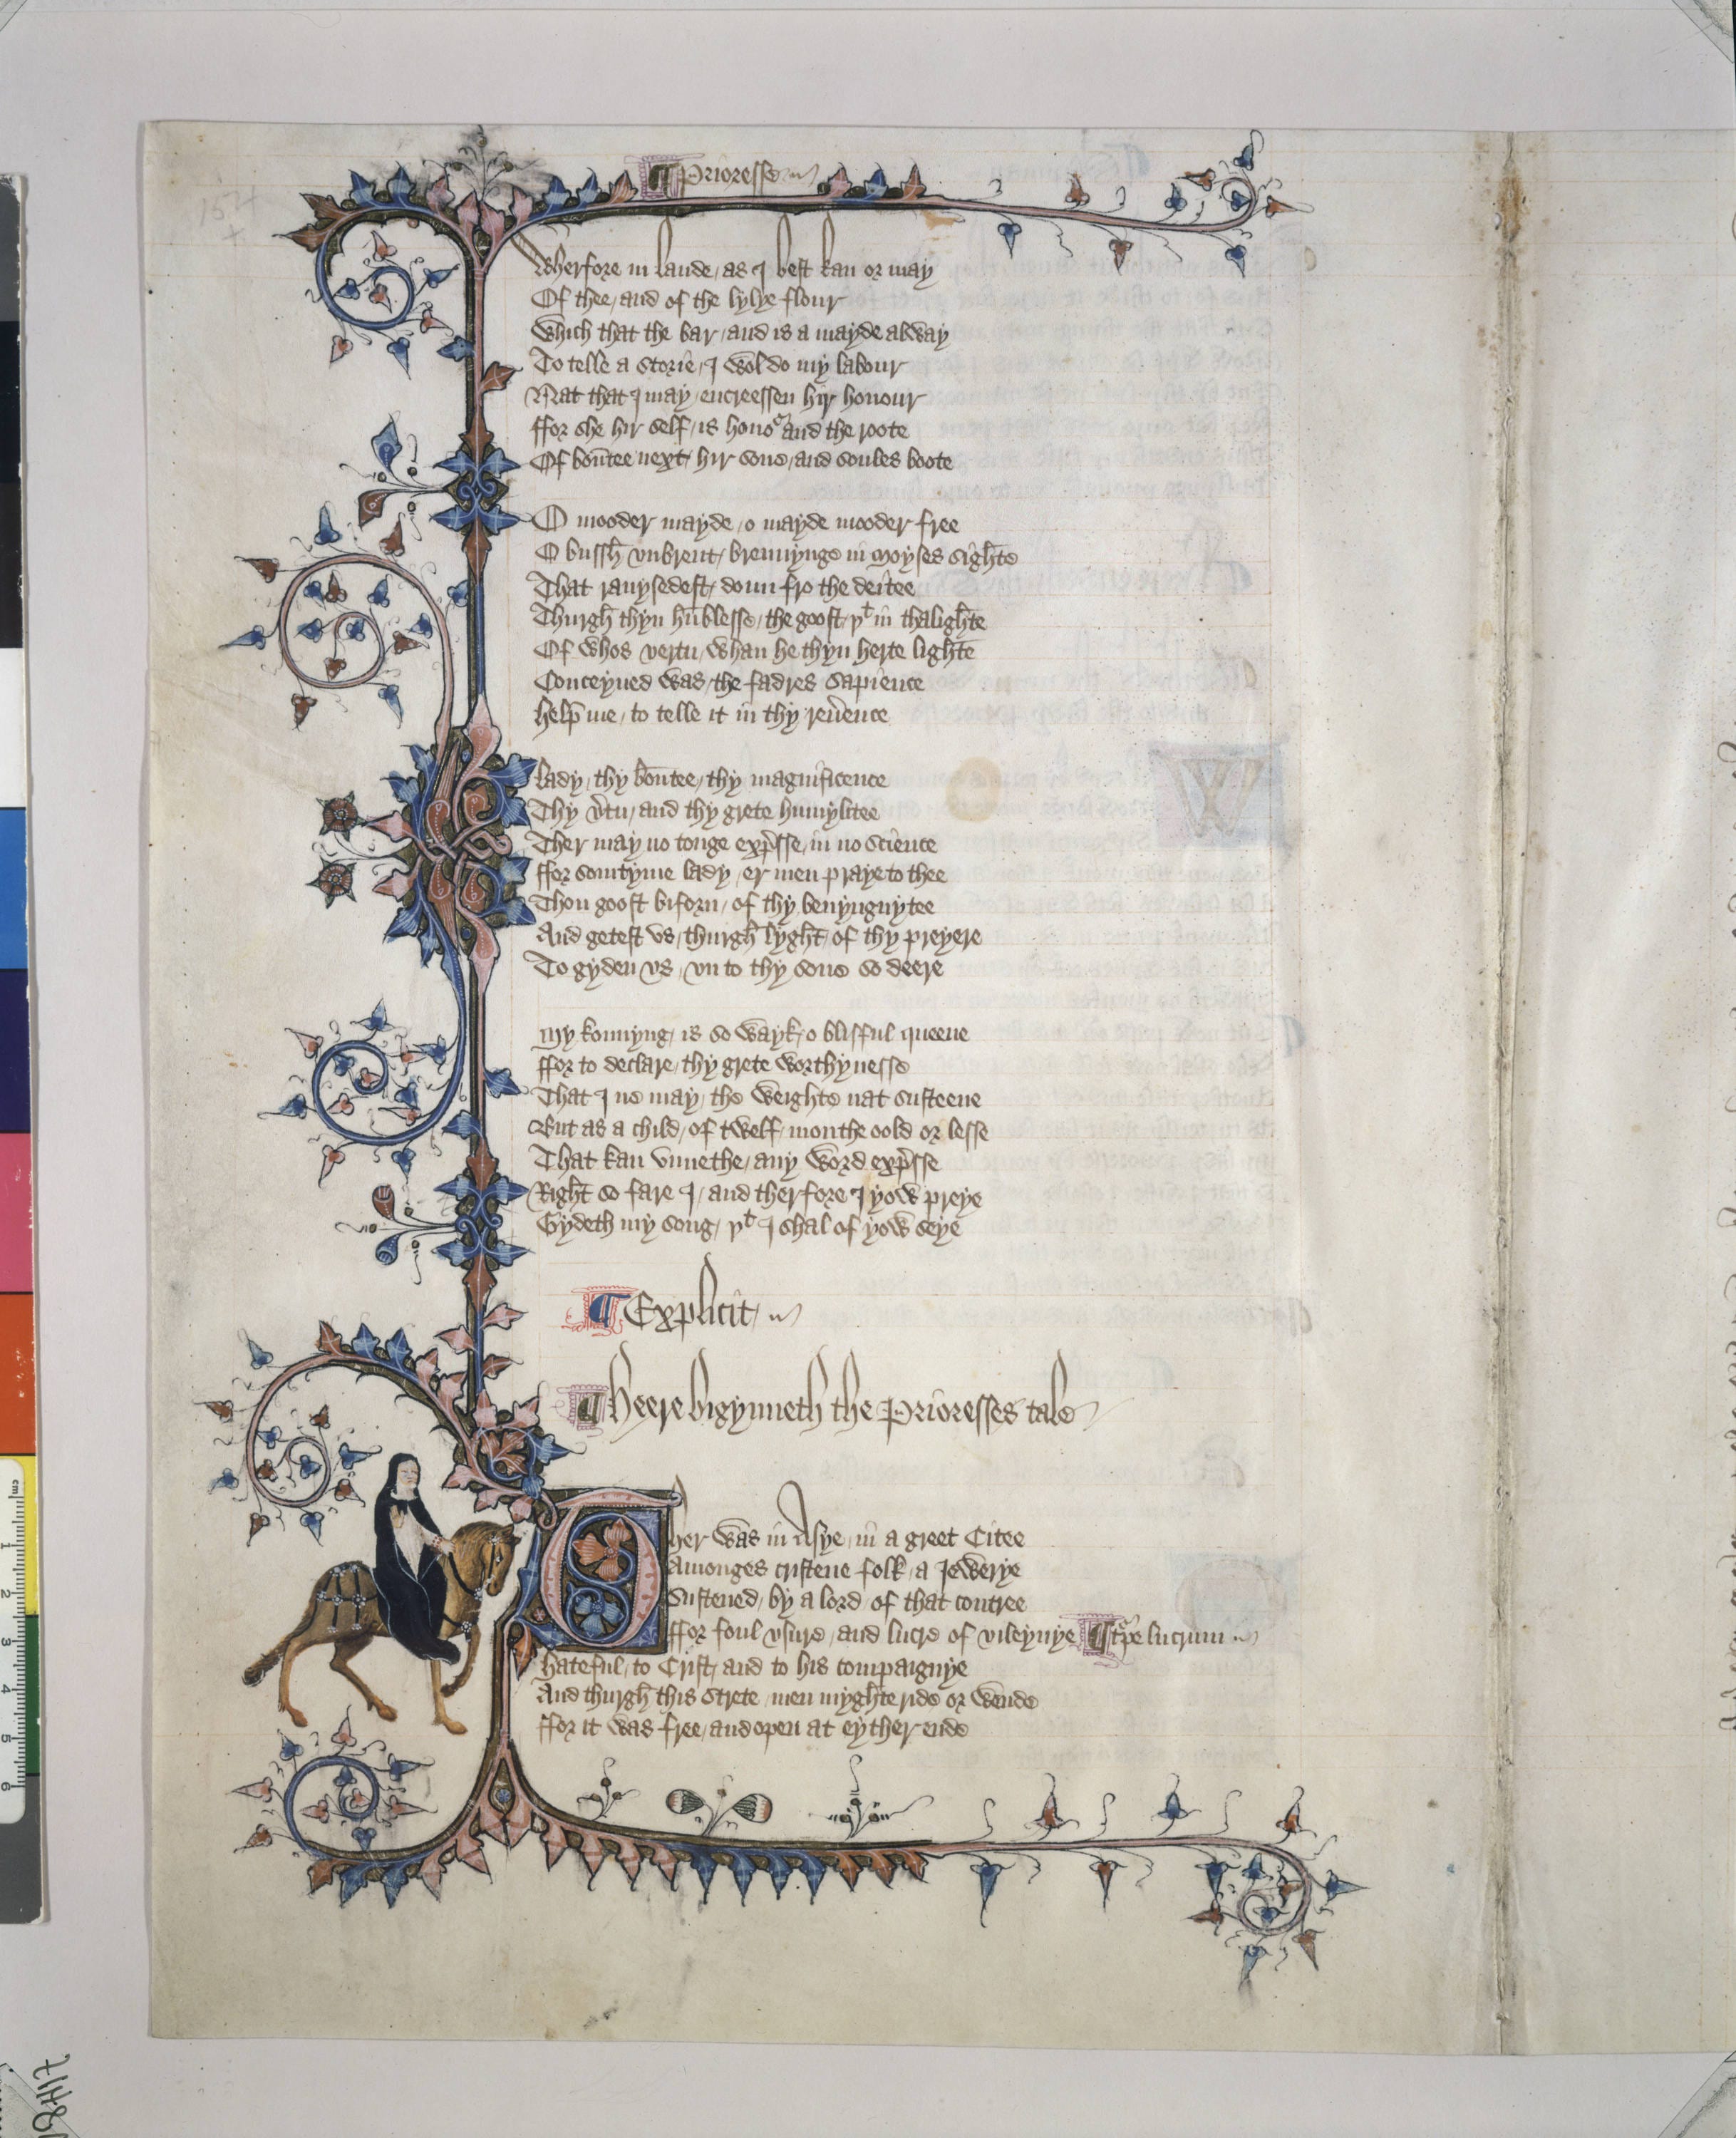 154
¶ Prioresse
Wherfore in laude / as I best kan or may
Of thee / and of the lylye flour
Which that the bar / and is a mayde alway
To telle a storie / I wol do my labour
Nat that I may / encreessen hir honour
ffor she hir self / is honoᵘʳ and the roote
Of bou̅tee next / hir sone / and soules boote
O mooder mayde / o mayde mooder free
O bussh̅ vnbrent / brennynge in Moyses sighte
That rauysedest / doun fro the deitee
Thurgh̅ thyn hu̅blesse / the goost / þᵗ in thalighte
Of whos vertu / whan he thyn herte lighte
Conceyued was / the fadres sapience
Help me / to telle it in thy reu̾ence
Lady / thy bou̅tee / thy magnificence
Thy v̾tu / and thy grete humylitee
Ther may no tonge exp̾sse / in no science
ffor somtyme lady / er men praye to thee
Thou goost biforn / of thy benyngnytee
And getest vs / thurgh̅ lyght / of thy preyere
To gyden vs / vn to thy sone so deere
My konnyng / is so wayk / o blisful queene
ffor to declare / thy grete worthynesse
That I ne may / the weighte nat susteene
But as a child / of twelf / monthe oold or lesse
That kan vnnethe / any word exp̾sse
Right so fare I / and therfore I yow preye
Gydeth my song / þᵗ I shal of yow seye
¶ Explicit /
¶ Heere bigynneth the Prioresses tale
Ther was in Asye / in a greet Citee
Amonges cristene folk / a Jewerye
Sustened / by a lord / of that contree
ffor foul vsure / and lucre of vileynye ¶ tᵘrpe lucrum
Hateful / to Crist / and to his compaignye
And thurgh̅ this strete / men myghte ride or wende
ffor it was free / and open at eyther ende
cm 1 2 3 4 5 6